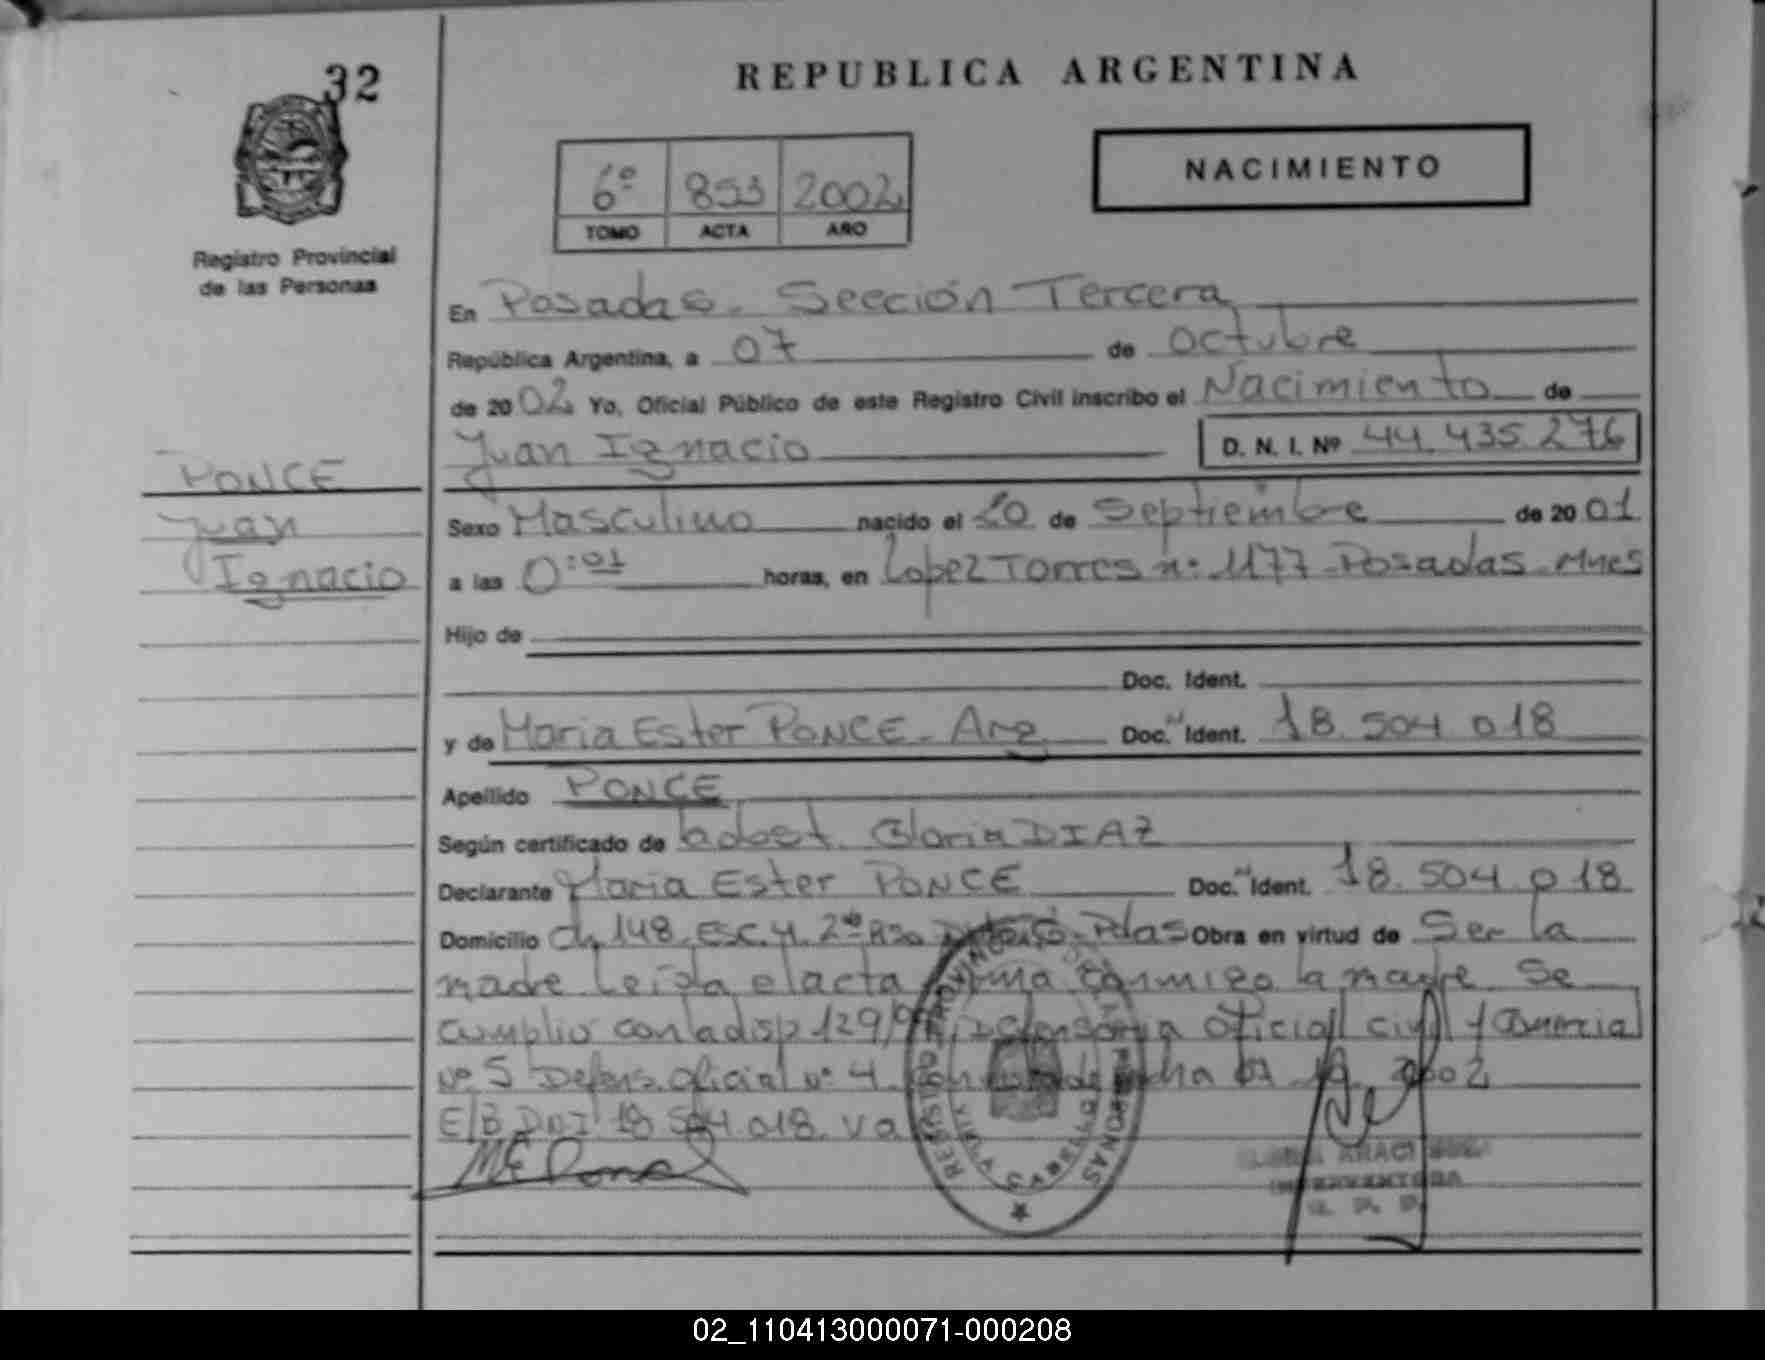 32
REPUBLICA ARGENTINA
6º 853 2002
TOMO ACTA AÑO
NACIMIENTO
Registro Provincial
de las Personas
En Posadas. Sección Tercera
República Argentina, a 07 de Octubre
de 2002 Yo, Oficial Público de este Registro Civil inscribo el Nacimiento de
Juan Ignacio D. N. I. Nº 44.435.276
PONCE
Juan
Ignacio
Sexo Masculino nacido el 20 de Septiembre de 2001
a las 0:01 horas, en Lopez Torres nº 1177 Posadas. Mnes
Hijo de
Doc. Ident.
y de Maria Ester PONCE - Arg. Doc. Ident. 18.504.018
Apellido PONCE
Según certificado de la obst. Gloria DIAZ
Declarante Maria Ester PONCE Doc. Ident. 18.504.018
Domicilio Ch 148. Esc. 4. 2do Pdas Obra en virtud de Ser la
madre. Leída el acta firma conmigo la madre. Se
cumplio con la disp 129/ Defensoria Oficial Civil y Comercial
Nº 5 Defens. Oficial nº 4. fecha 2002
E/B DNI 18.504.018. Va
REGISTRO PROVINCIAL DE LAS PERSONAS
INTERVENTORA
02_110413000071-000208